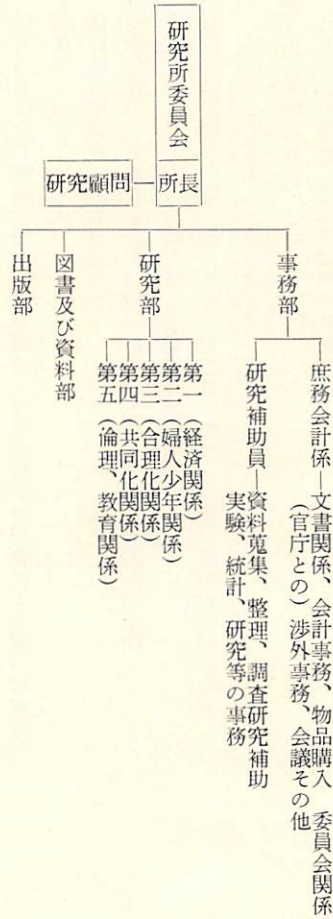 研究所委員会
所長
研究顧問
事務部
庶務会計係
文書関係、会計事務、物品購入 委員会関係
(官庁との)渉外事務、会議その他
研究補助員
資料蒐集、整理、調査研究補助
実験、統計、研究等の事務
研究部
第一(経済関係)
第二(婦人少年関係)
第三(合理化関係)
第四(共同化関係)
第五(倫理、教育関係)
図書及び資料部
出版部